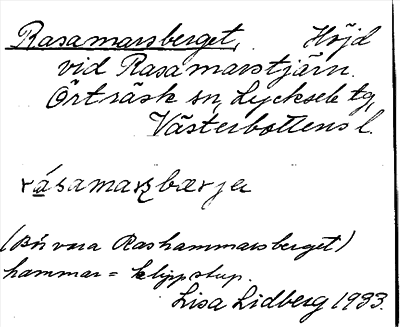 Rasamarsberget, Höjd
vid Rasamarstjärn.
Örträsk sn, Lycksele tg,
Västerbottens l.
rásamarsbærjer
(Bör vara Rashammarsberget)
hammar = klippstup.
Lisa Lidberg 1983.